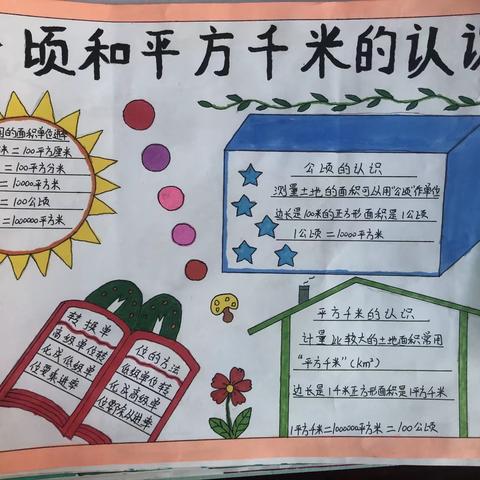 顷和平方千米的认识
的面积单位进率
米=100平方厘米
=100平方分米
=10000平方米
=100公顷
=1000000平方米
公顷的认识
测量土地的面积可以用“公顷”作单位
边长是100米的正方形面积是1公顷
1公顷=10000平方米
转换单
高级单位转
化成低级单
位要乘进率
位的方法
低级单位转
化成高级单
位要除以进率
平方千米的认识
计量比较大的土地面积常用
“平方千米”(km²)
边长是1千米正方形面积是1平方千米
1平方千米=1000000平方米=100公顷